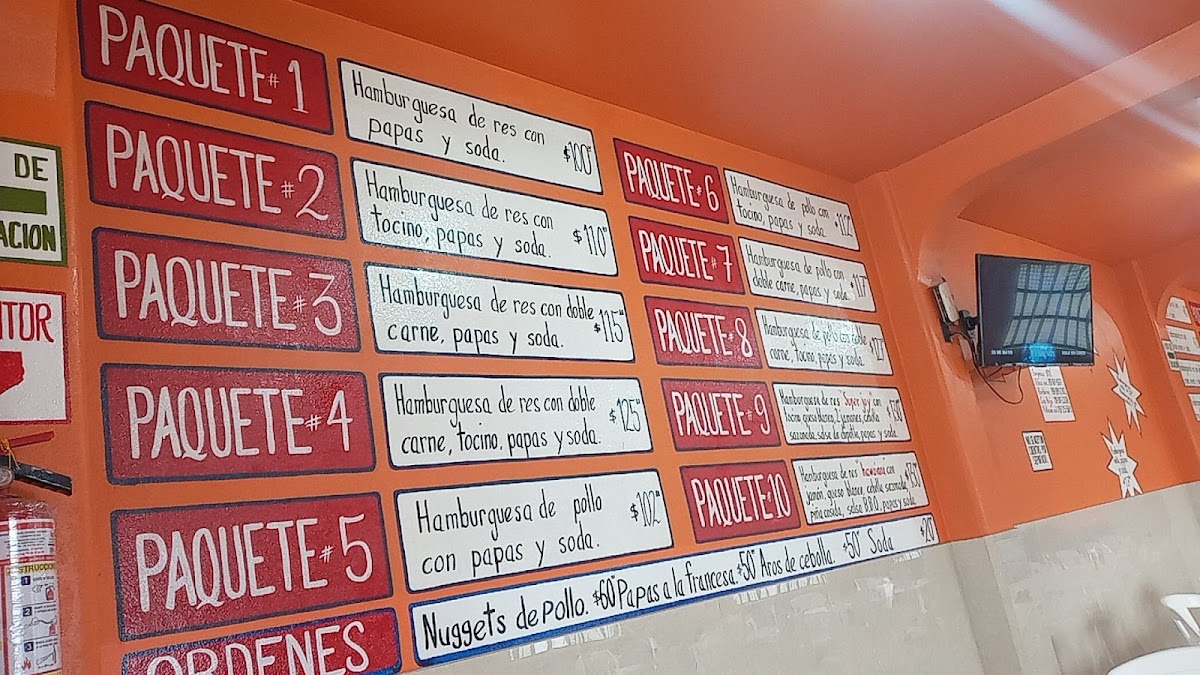 PAQUETE #1
Hamburguesa de res con
papas y soda. $100
PAQUETE #2
Hamburguesa de res con
tocino, papas y soda. $110
PAQUETE #3
Hamburguesa de res con doble
carne, papas y soda. $115
PAQUETE #4
Hamburguesa de res con doble
carne, tocino, papas y soda. $125
PAQUETE #5
Hamburguesa de pollo
con papas y soda. $102
PAQUETE #6
Hamburguesa de pollo con
tocino, papas y soda. $112
PAQUETE #7
Hamburguesa de pollo con
doble carne, papas y soda. $117
PAQUETE #8
Hamburguesa de pollo con doble
carne, tocino, papas y soda. $127
PAQUETE #9
Hamburguesa de res "Super
con
tocino, queso blanco, 2 jamones, cebolla
sazonada, salsa de chipotle, papas y soda.
PAQUETE 10
Hamburguesa de res "hawaiana" con
jamón, queso blanco, cebolla sazonada,
piña cosida, salsa B.B.Q, papas y soda.
ORDENES
Nuggets de pollo. $60 Papas a la francesa. $50 Aros de cebolla. $50 Soda $20
DE
ACION
ITOR